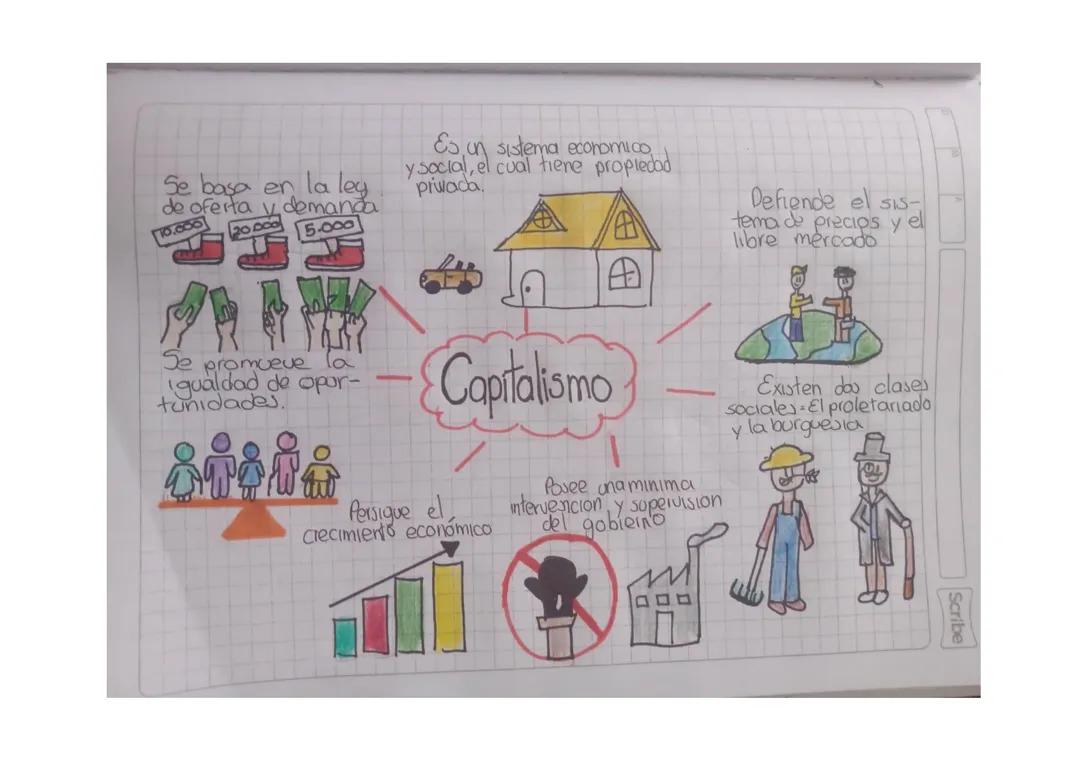 Es un sistema economico
y social, el cual tiene propiedad
privada.
Se basa en la ley
de oferta y demanda
10.000
20.000
5.000
Defiende el sis-
tema de precios y el
libre mercado
Se promueve la
igualdad de opor-
tunidades.
Capitalismo
Existen dos clases
sociales: El proletariado
y la burguesia
Persigue el
crecimiento económico
Posee una minima
intervencion y supervision
del gobierno
Scribe